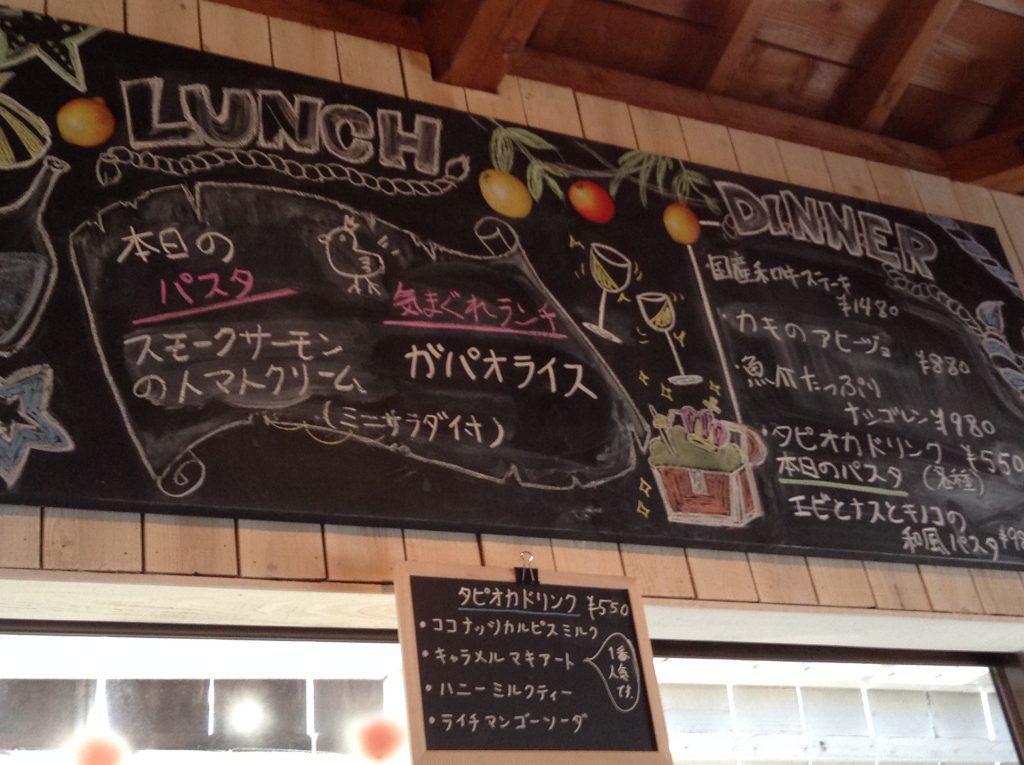 LUNCH
本日の
パスタ
スモークサーモン
のトマトクリーム
気まぐれランチ
ガパオライス
(ミニサラダ付)
DINNER
国産和牛ステーキ
¥1480
・カキのアヒージョ
¥880
・魚介たっぷり
ナシゴレン ¥980
・タピオカドリンク ¥550
(各種)
本日のパスタ
エビとナスとキノコの
和風パスタ
タピオカドリンク ¥550
・ココナッツカルピスミルク
・キャラメルマキアート
1番
人気
です
・ハニーミルクティー
・ライチマンゴーソーダ